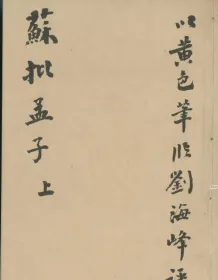 以黄色筆临劉海峰
蘇批孟子 上